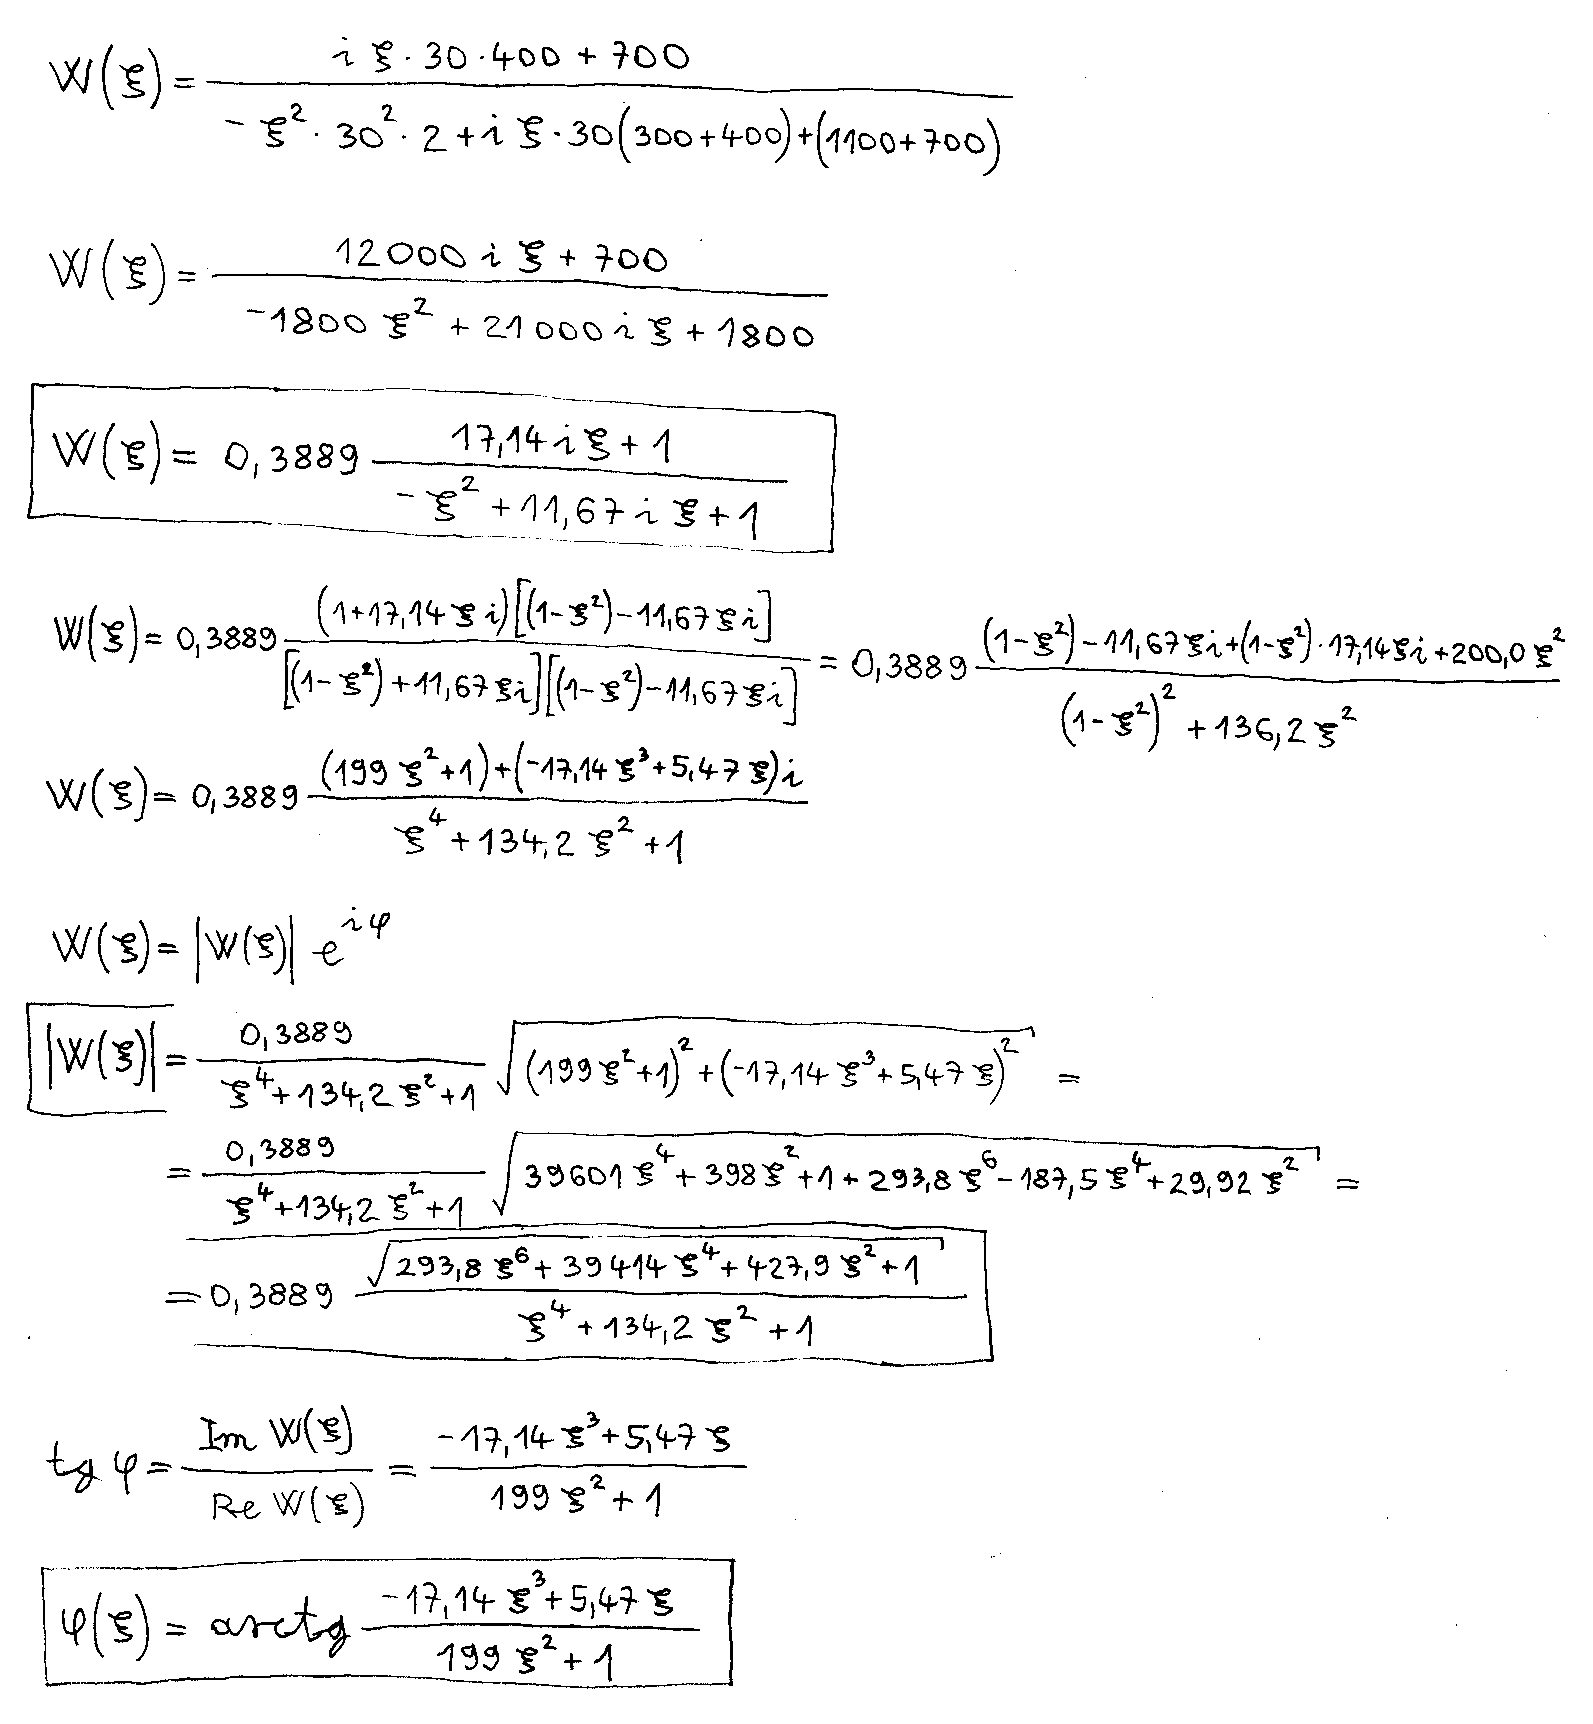 W(ξ) = (i ξ · 30 · 400 + 700) / (-ξ² · 30² · 2 + i ξ · 30(300+400) + (1100+700))
W(ξ) = (12000 i ξ + 700) / (-1800 ξ² + 21000 i ξ + 1800)
W(ξ) = 0,3889 (17,14 i ξ + 1) / (-ξ² + 11,67 i ξ + 1)
W(ξ) = 0,3889 (1+17,14 ξ i)[(1-ξ²)-11,67 ξ i] / [(1-ξ²)+11,67 ξ i][(1-ξ²)-11,67 ξ i] = 0,3889 ((1-ξ²)-11,67 ξ i+(1-ξ²)·17,14 ξ i+200,0 ξ²) / ((1-ξ²)² + 136,2 ξ²)
W(ξ) = 0,3889 ((199 ξ²+1)+(-17,14 ξ³+5,47 ξ) i) / (ξ⁴ + 134,2 ξ² + 1)
W(ξ) = |W(ξ)| e^{iφ}
|W(ξ)| = 0,3889 / (ξ⁴+134,2 ξ²+1) √((199 ξ²+1)²+(-17,14 ξ³+5,47 ξ)²) =
= 0,3889 / (ξ⁴+134,2 ξ²+1) √(39601 ξ⁴+398 ξ²+1+293,8 ξ⁶-187,5 ξ⁴+29,92 ξ²) =
= 0,3889 √(293,8 ξ⁶+39414 ξ⁴+427,9 ξ²+1) / (ξ⁴+134,2 ξ²+1)
tg φ = Im W(ξ) / Re W(ξ) = (-17,14 ξ³+5,47 ξ) / (199 ξ²+1)
φ(ξ) = arctg (-17,14 ξ³+5,47 ξ) / (199 ξ²+1)